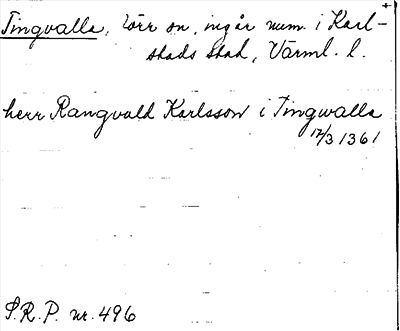 Tingvalla, törr on, ingår num. i Karl-
stads stad, Värml. l.
herr Rangvald Karlsson i Tingwalla
17/3 1361
S.R.P. nr. 496